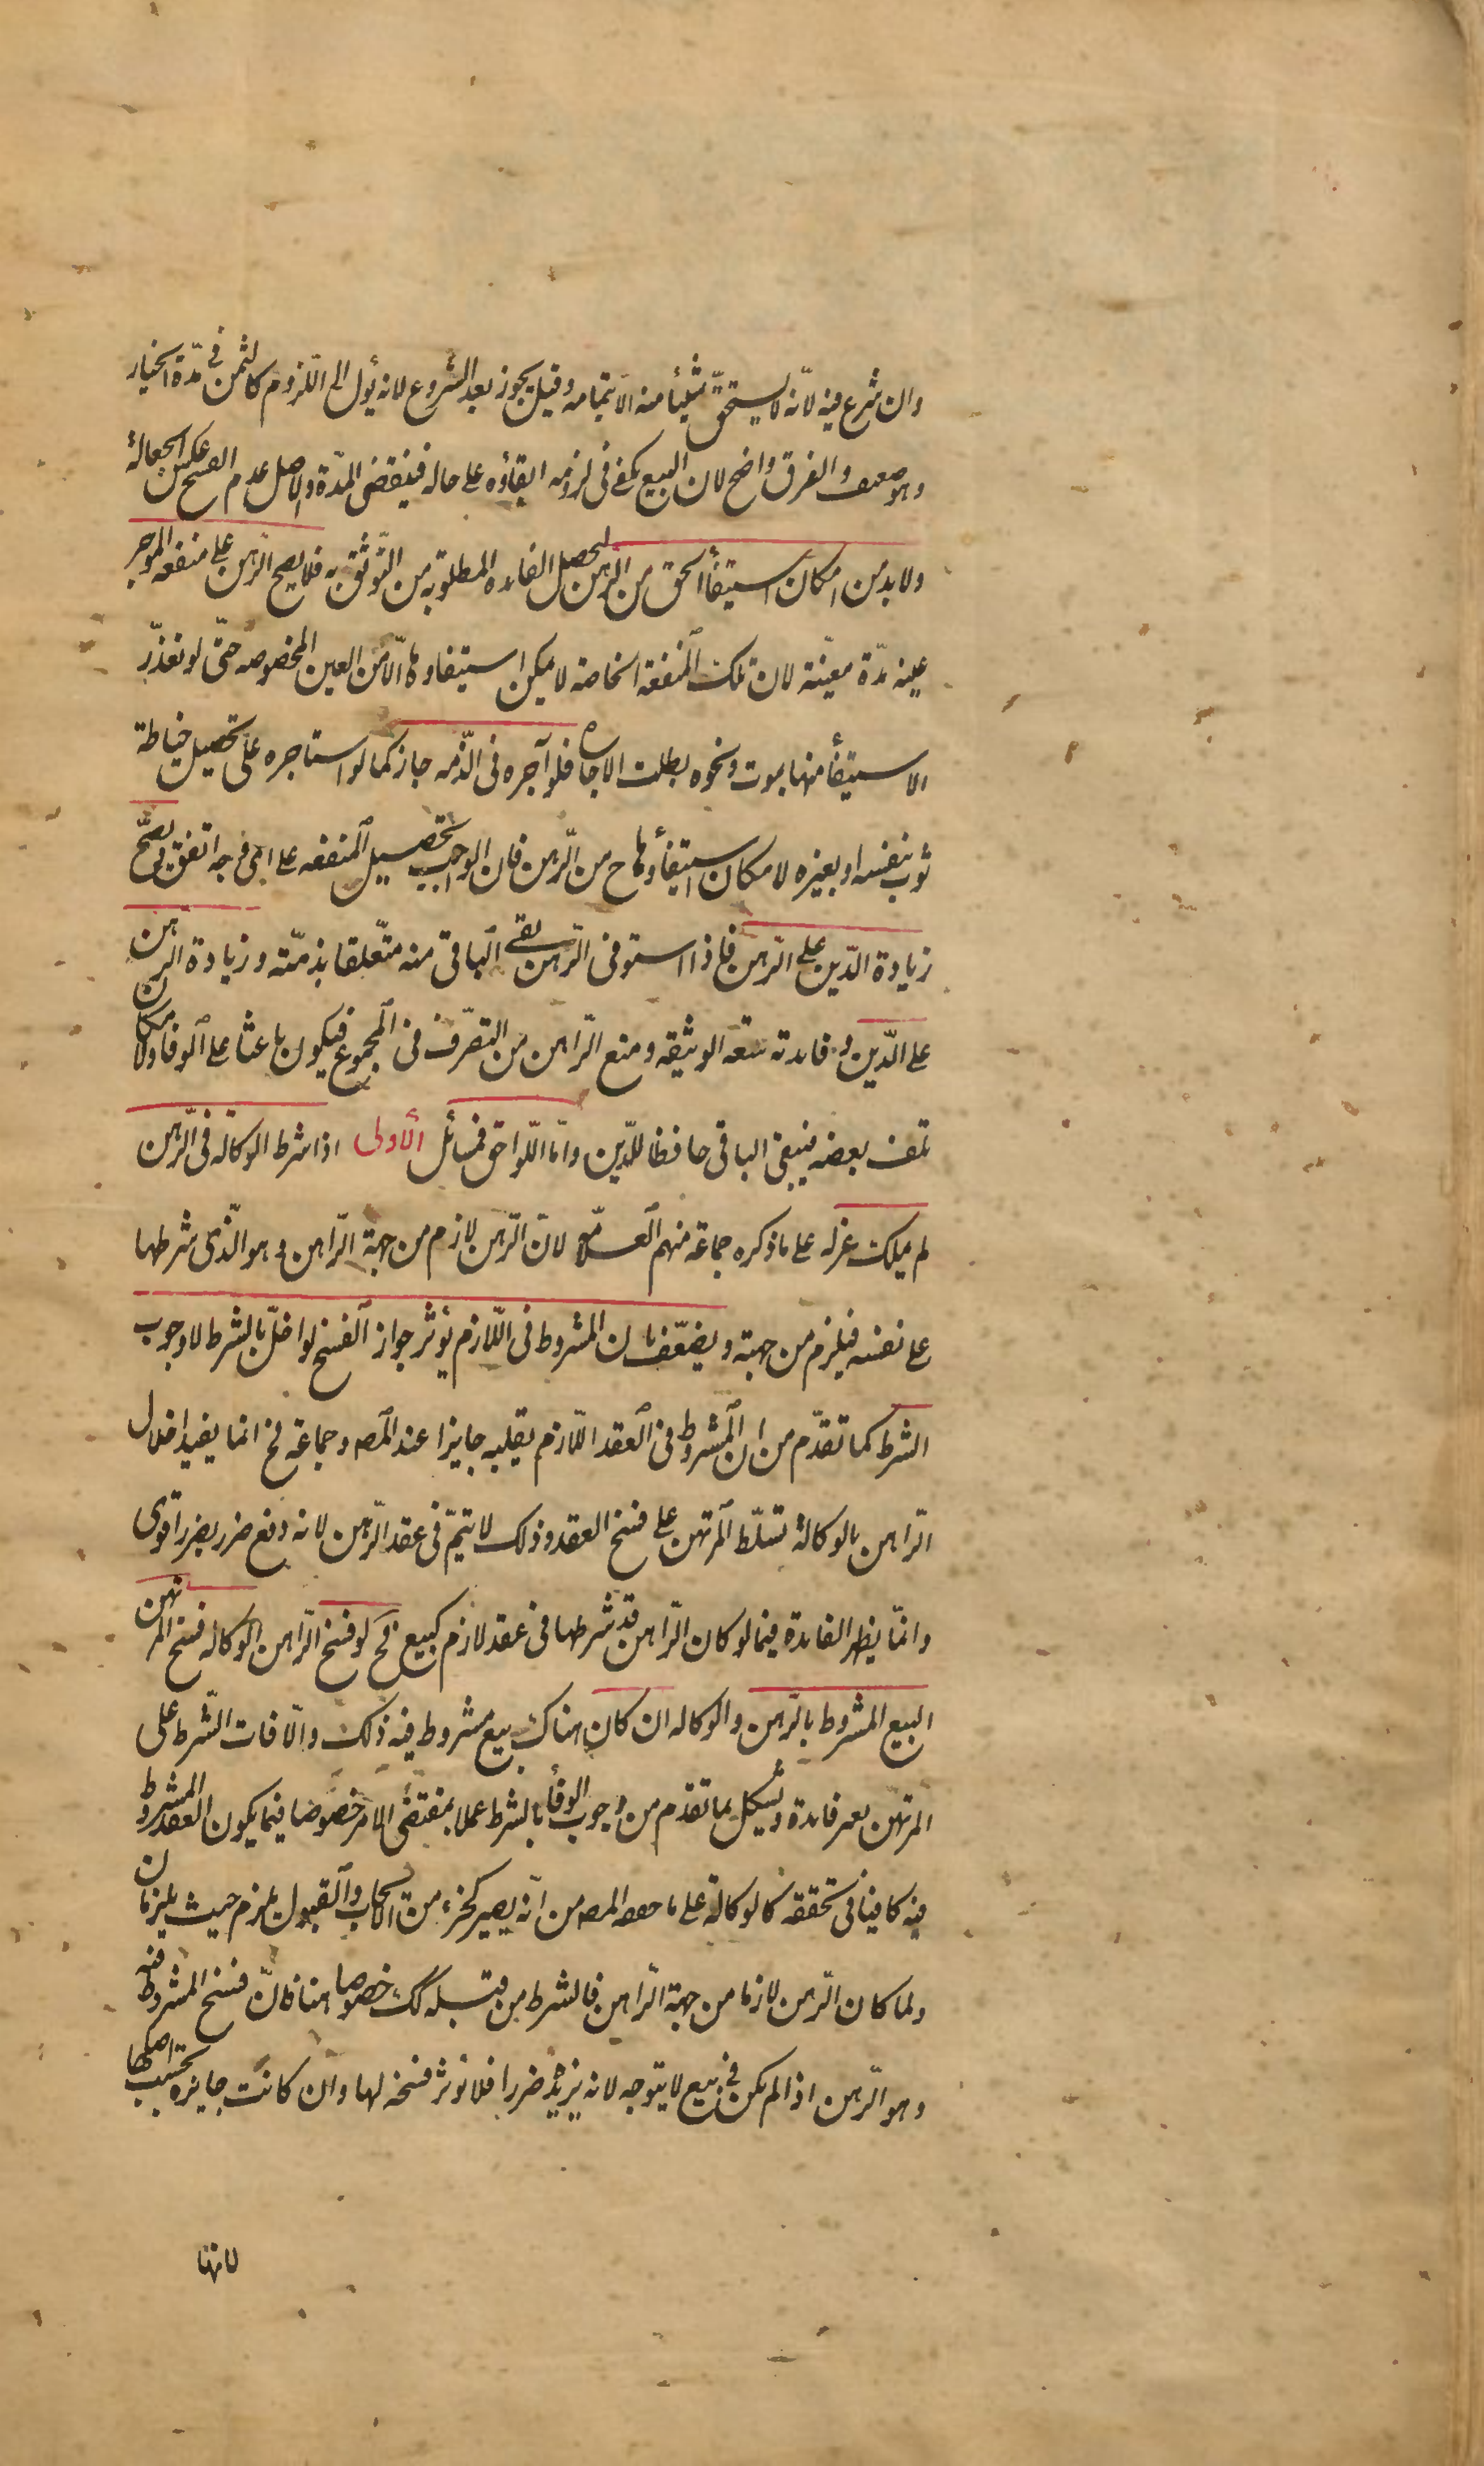 وان شرع فيه لانّه لا يستحقّ شيئا منه الا بتمامه وقيل يجوز بعد الشروع لانه يؤل الى اللزوم كالثمن في مدّة الخيار
وهو ضعيف والفرق واضح لان البيع يكفى فى لزومه ابقاؤه على حاله فينقضى المدّة والاصل عدم الفسخ عكس الجعالة
ولا بد من امكان استيفأ الحق من الرهن لتحصل الفايده المطلوبه من التوثق به فلا يصح الرهن على منفعه الموجر
عينه مدّة معيّنة لان تلك المنفعة الخاصه لا يمكن استيفاوها الّا من العين المخصوصه حتّى لو تعذّر
الاستيفأ منها بموت ونحوه بطلت الاجاره فلو آجره فى الذّمه جاز كما لو استاجره على تحصيل خياطة
ثوب بنفسه او بغيره لامكان استيفأوها ح من الرّهن فان الواجب تحصيل المنفعه على اى وجه اتفق ويصحّ
زيادة الدّين على الرّهن فاذا استوفى الرّهن بقى الباقى منه متعّلقا بذمّته وزيادة الرهن
على الدّين وفايدته سعه الوثيقه ومنع الرّاهن من التصرّف فى المجموع فيكون باعثا على الوفا ولامكان
تلف بعضه فيبقى الباقى حافظا للدّين وامّا اللّواحق فمسائل الأولى اذا شرط الوكاله فى الرّهن
لم يملك عزله على ما ذكره جماعة منهم العلامّه لانّ الرّهن لازم من جهة الرّاهن وهو الّذى شرطها
على نفسه فيلزم من جهته ويضعّف بان المشروط فى اللّازم يؤثر جواز الفسخ لو اخلّ بالشرط لا وجوب
الشرط كما تقدّم من ان المشروط فى العقد اللّازم يقلبه جايزا عند المصه وجماعة فح انما يفيد اخلال
الرّاهن بالوكالة تسلّط المرتهن على فسخ العقد وذلك لا يتمّ فى عقد الرّهن لانه دفع ضرر بضرر اقوى
وانمّا يظهر الفايدة فيما لو كان الرّاهن قد شرطها فى عقد لازم كبيع فح لو فسخ الرّاهن الوكاله فسخ المرتهن
البيع المشروط بالرّهن والوكاله ان كان هناك بيع مشروط فيه ذلك والّا فات الشّرط على
المرتهن بغير فايدة ويشكل بما تقدم من وجوب الوفأ بالشرط عملا بمقتضى الامر خصوصا فيما يكون العقد المشروط
فيه كافيا فى تحققه كالوكالة على ما حققه المصه من انّه يصير كجزء من الايجاب والقبول يلزم حيث يلزمان
ولما كان الرّهن لازما من جهة الرّاهن فالشرط من قبله كك خصوصا هنا فانّ فسخ المشروط فيه
وهو الرّهن اذا لم يكن فى بيع لا يتوجه لانه يزيده ضررا فلا تؤثر فسخه لها وان كانت جايزه بحسب اصلها
لانها